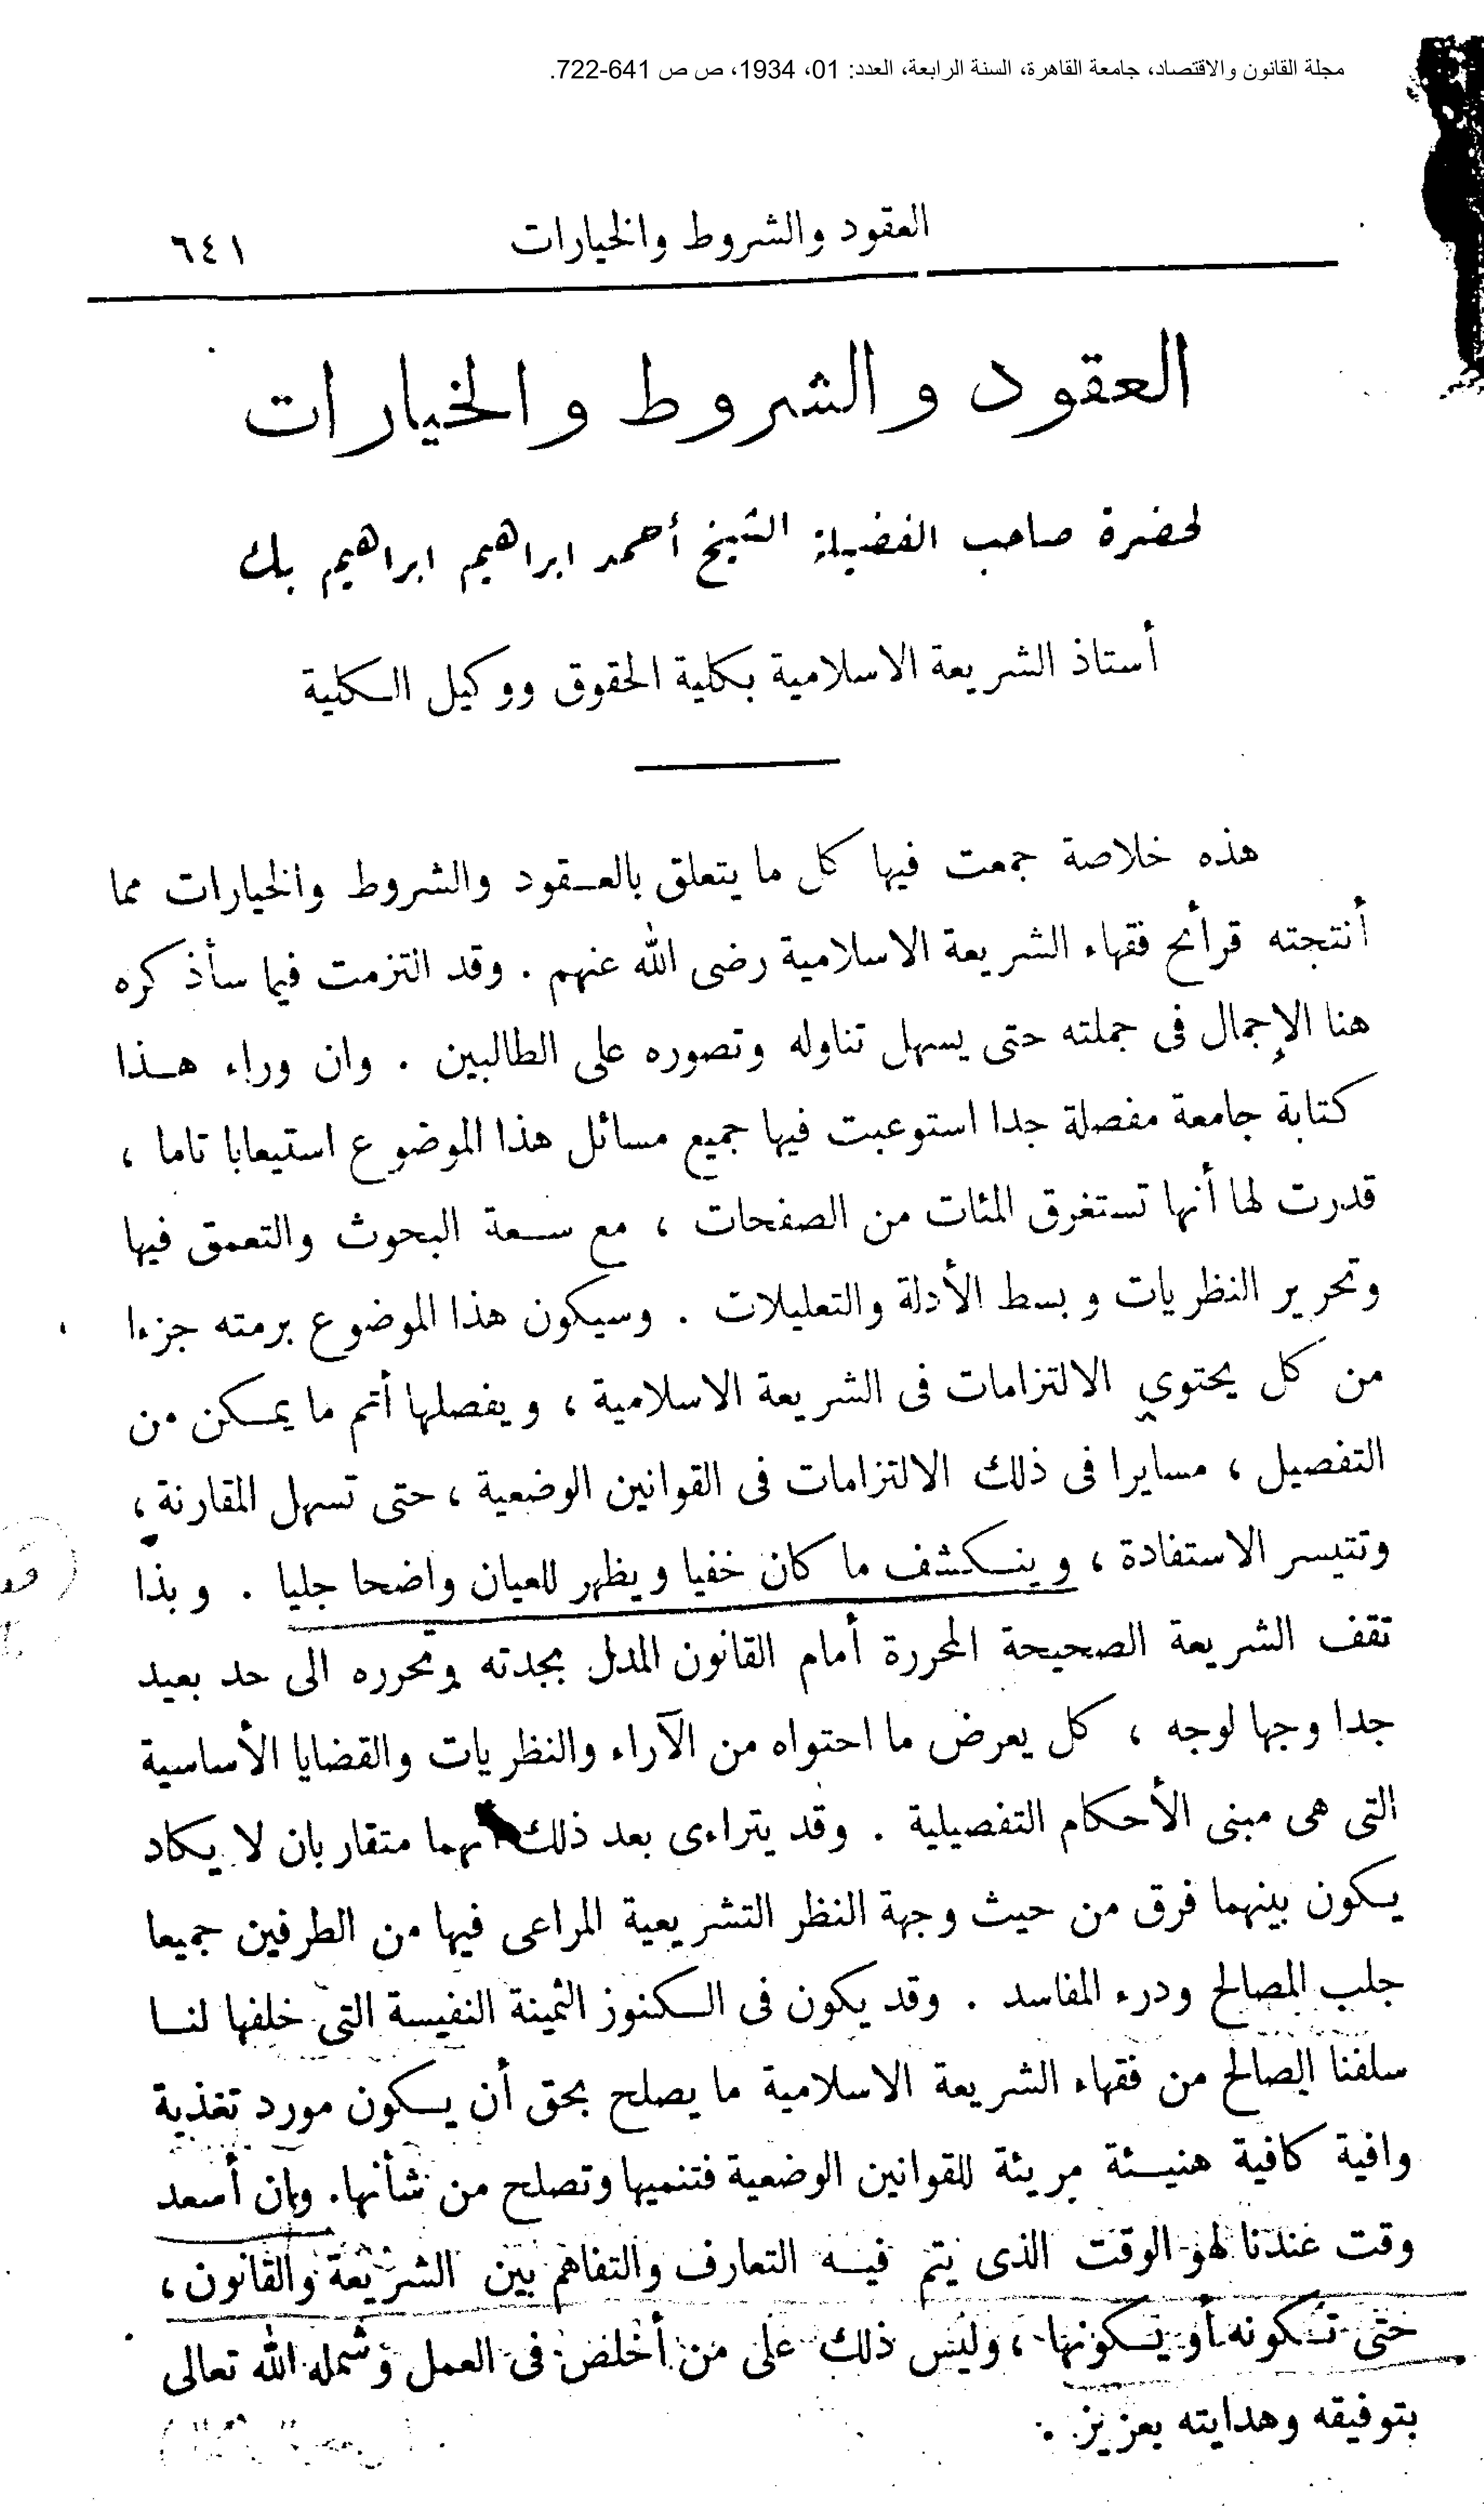 مجلة القانون والاقتصاد، جامعة القاهرة، السنة الرابعة، العدد: 01، 1934، ص ص 641-722.
العقود والشروط والخيارات ٦٤١
العقود والشروط والخيارات
لحضرة صاحب الفضيلة الشيخ أحمد ابراهيم ابراهيم بك
أستاذ الشريعة الاسلامية بكلية الحقوق ووكيل الكلية
هذه خلاصة جمعت فيها كل ما يتعلق بالعقود والشروط والخيارات مما
أنتجته قرأئح فقهاء الشريعة الاسلامية رضى الله عنهم . وقد التزمت فيما سأذكره
هنا الإجمال فى جملته حتى يسهل تناوله وتصوره على الطالبين . وان وراء هذا
كتابة جامعة مفصلة جدا استوعبت فيها جميع مسائل هذا الموضوع استيعابا تاما ،
قدرت لها أنها تستغرق المئات من الصفحات ، مع سعة البحوث والتعمق فيها
وتحرير النظريات وبسط الأدلة والتعليلات . وسيكون هذا الموضوع برمته جزءا
من كل يحتوي الالتزامات فى الشريعة الاسلامية ، ويفصلها أتم ما يمكن من
التفصيل ، مسايرا فى ذلك الالتزامات فى القوانين الوضعية ، حتى تسهل المقارنة ،
وتتيسر الاستفادة ، وينكشف ما كان خفيا ويظهر للعيان واضحا جليا . وبذا
تقف الشريعة الصحيحة المحررة أمام القانون المدل بجدته وتحرره الى حد بعيد
جدا وجها لوجه ، كل يعرض ما احتواه من الآراء والنظريات والقضايا الأساسية
التى هى مبنى الأحكام التفصيلية . وقد يتراءى بعد ذلك أنهما متقاربان لا يكاد
يكون بينهما فرق من حيث وجهة النظر التشريعية المراعى فيها من الطرفين جميعا
جلب المصالح ودرء المفاسد . وقد يكون فى الكنوز الثمينة النفيسة التى خلفها لنا
سلفنا الصالح من فقهاء الشريعة الاسلامية ما يصلح بحق أن يكون مورد تغذية
وافية كافية هنيئة مريئة للقوانين الوضعية فتنميها وتصلح من شأنها. وإن أسعد
وقت عندنا لهو الوقت الذى يتم فيه التعارف والتفاهم بين الشريعة والقانون ،
حتى تكونه أو يكونها ، وليس ذلك على من أخلص فى العمل وشمله الله تعالى
بتوفيقه وهدايته بعزيز .